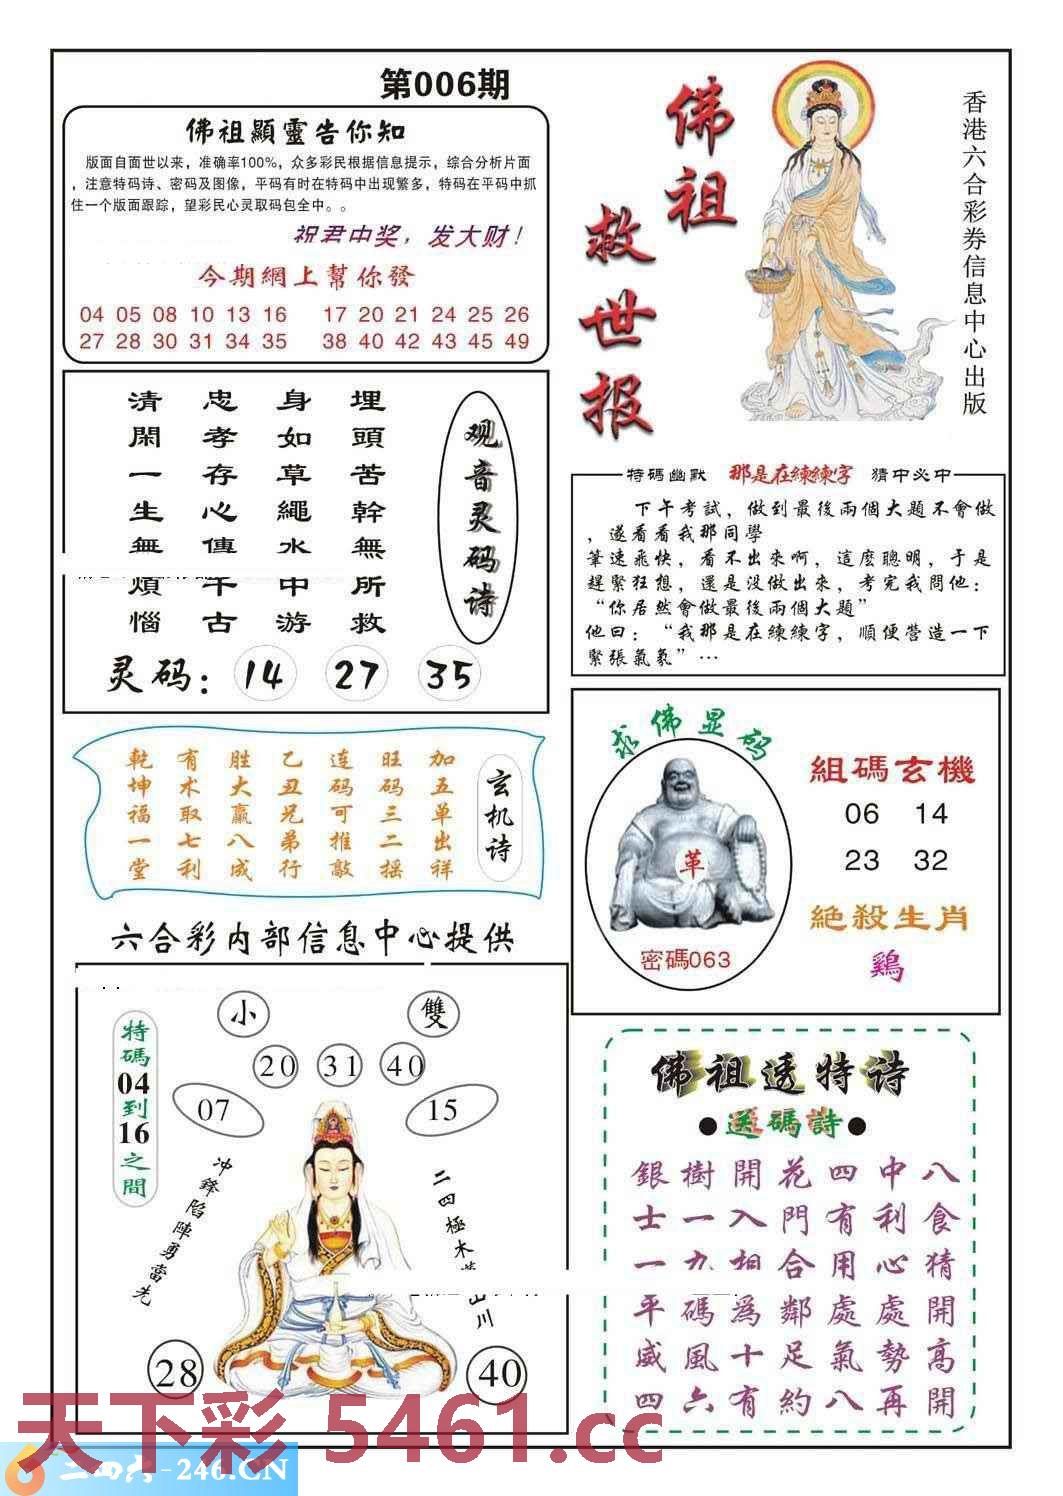 第006期
佛祖顯靈告你知
版面自面世以来，准确率100%，众多彩民根据信息提示，综合分析片面
，注意特码诗、密码及图像，平码有时在特码中出现繁多，特码在平码中抓
住一个版面跟踪，望彩民心灵取码包全中。。
祝君中奖，发大财！
今期網上幫你發
04 05 08 10 13 16 17 20 21 24 25 26
27 28 30 31 34 35 38 40 42 43 45 49
佛祖
救世报
香港六合彩券信息中心出版
观音灵码诗
埋頭苦幹無所救
身如草繩水中游
忠孝存心傳千古
清閑一生無煩惱
灵码：14 27 35
特碼幽默 那是在練練字 猜中必中
下午考試，做到最後兩個大題不會做
，遂看看我那同學
筆速飛快，看不出來啊，這麼聰明，于是
趕緊狂想，還是没做出來，考完我問他：
“你居然會做最後兩個大題”
他曰：“我那是在練練字，順便營造一下
緊張氣氛”…
玄机诗
加五单出祥
旺码三二摇
连码可推敲
乙丑兄弟行
胜大赢八成
有术取七利
乾坤福一堂
求佛显码
革
密碼063
組碼玄機
06 14
23 32
絕殺生肖
鷄
六合彩内部信息中心提供
特碼04到16之間
小
雙
20 31 40
07
15
冲鋒陷陣勇當先
二四極木
山川
28
40
佛祖透特诗
●送碼詩●
八食猜開高開
中利心處勢再
四有用處氣八
花門合鄰足約
開入相爲十有
樹一九碼風六
銀士一平威四
天下彩 5461.cc
二四六-246.CN